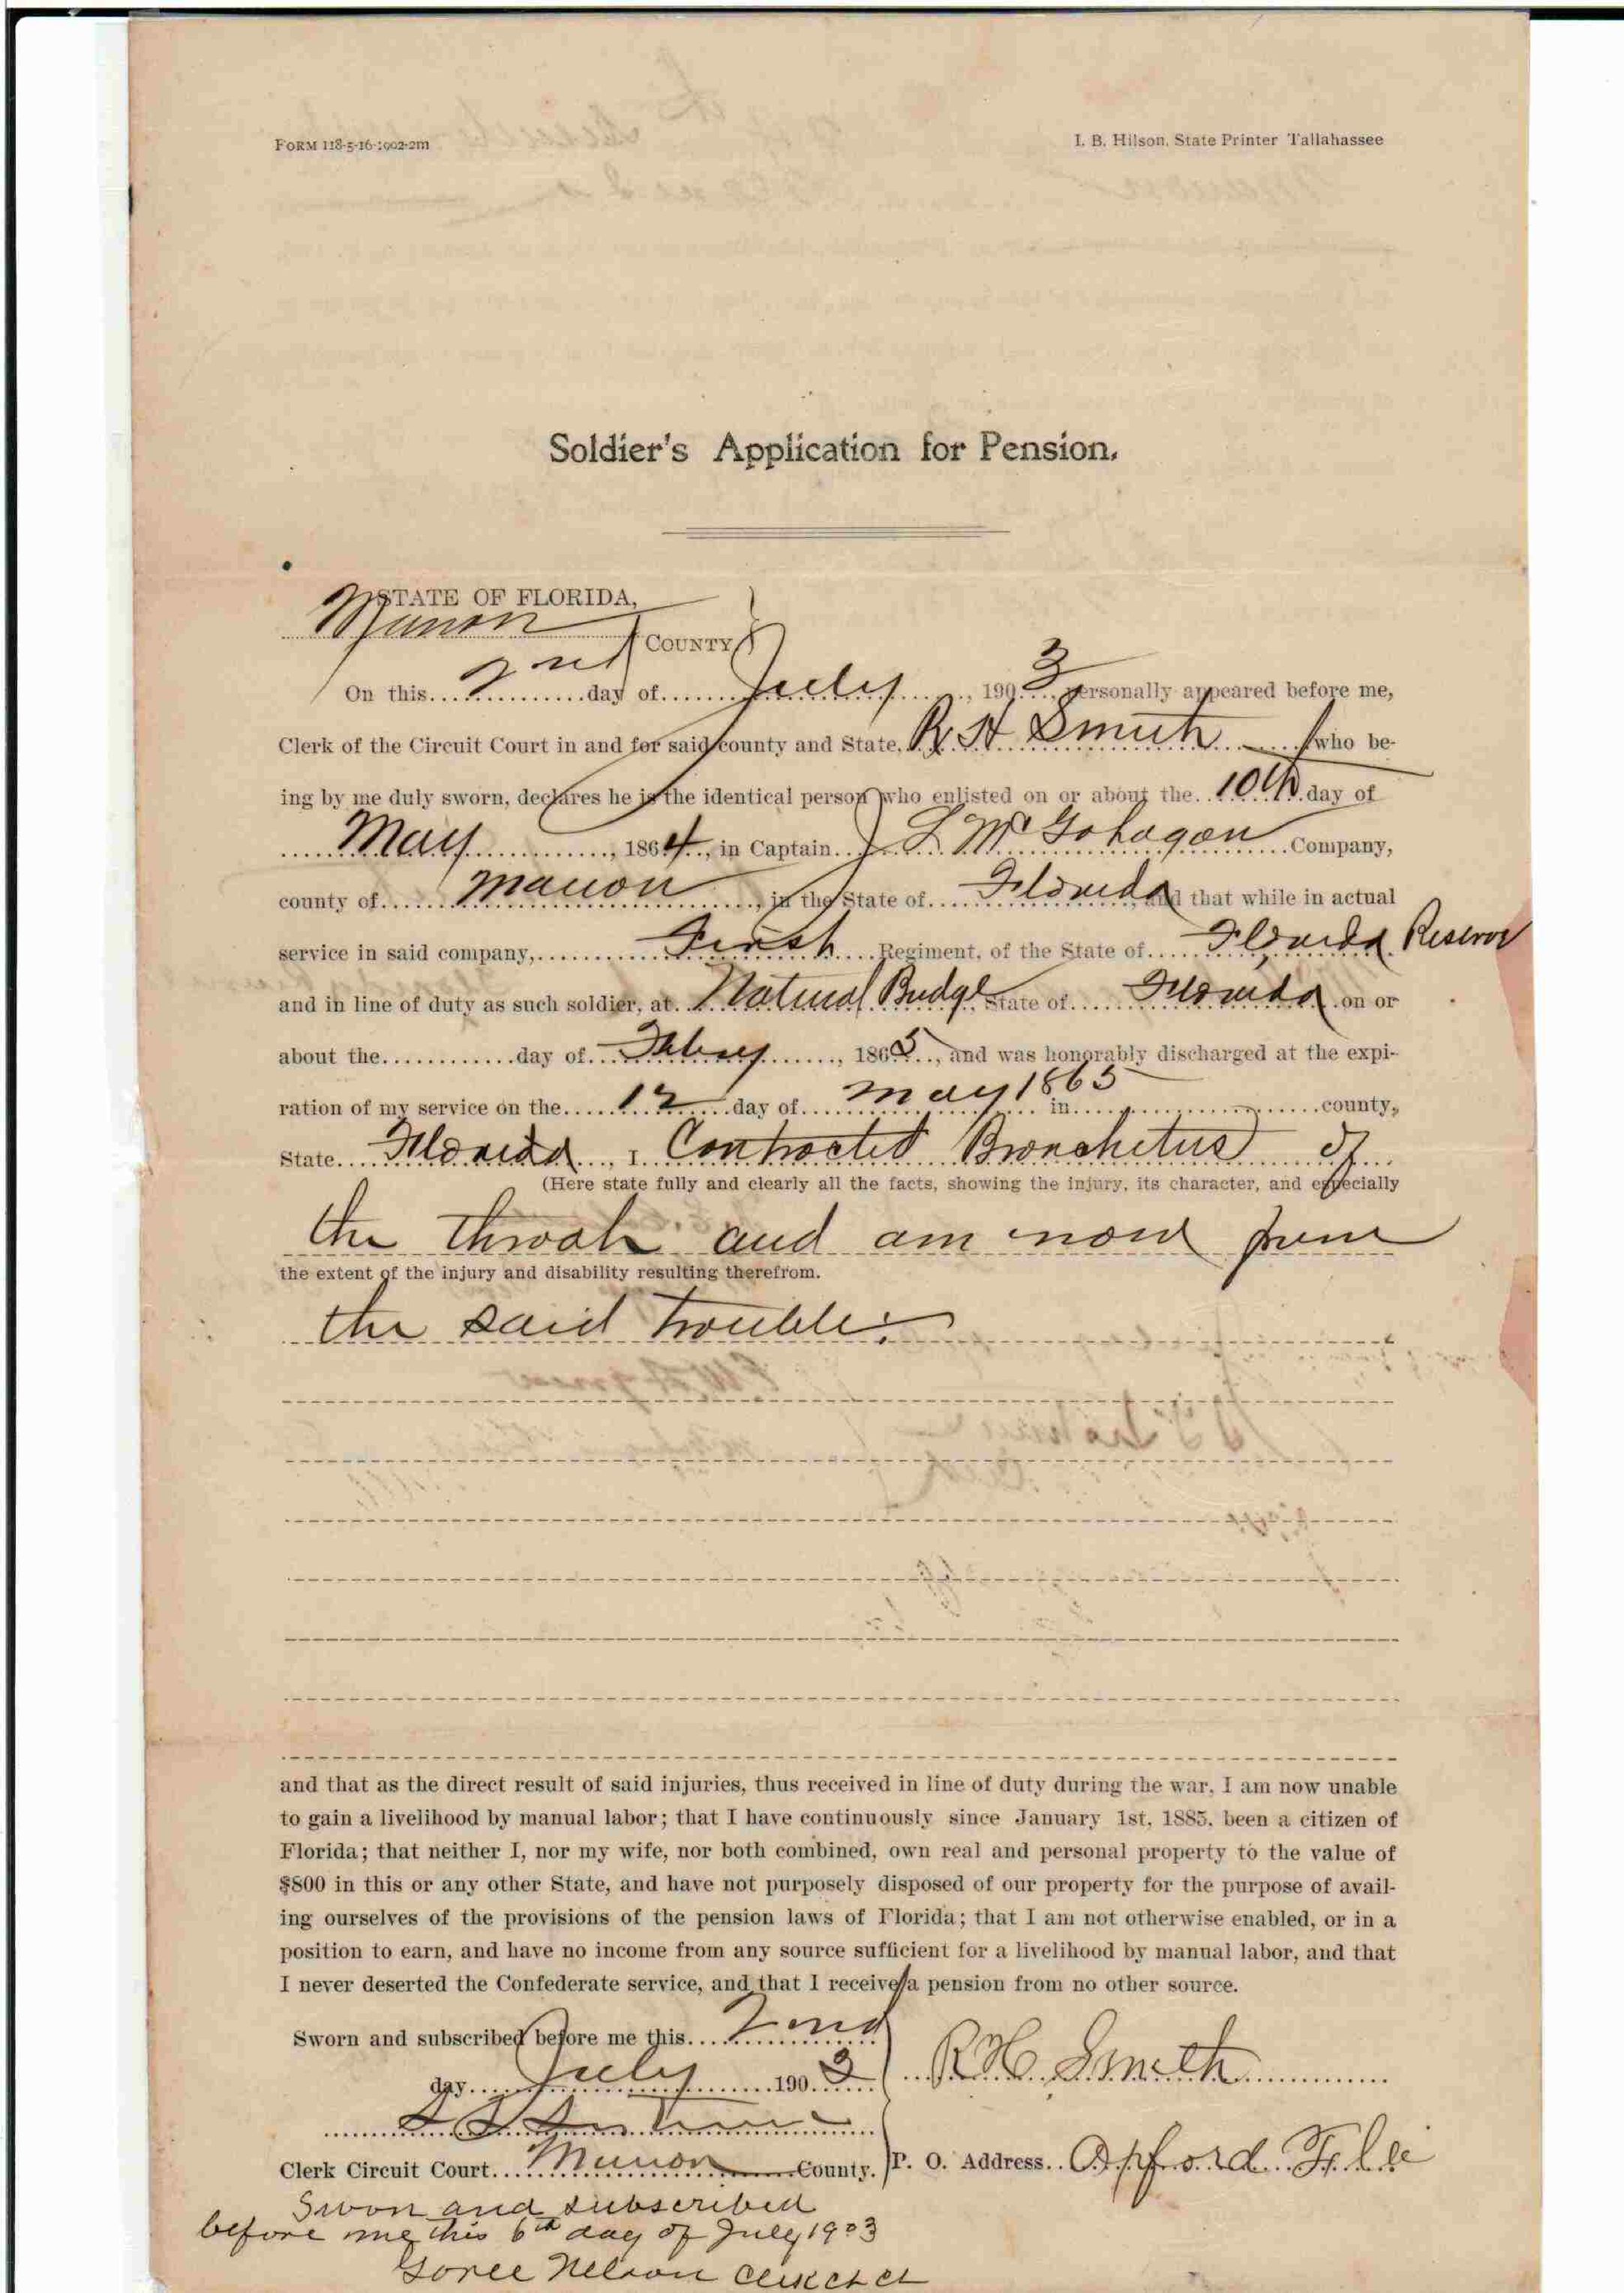 FORM 118-5-16-1902-2m
I. B. Hilson, State Printer Tallahassee
Soldier's Application for Pension.
STATE OF FLORIDA,
Marion COUNTY
On this 2nd day of July, 1903 personally appeared before me,
Clerk of the Circuit Court in and for said county and State, R H Smith who be-
ing by me duly sworn, declares he is the identical person who enlisted on or about the 10th day of
May, 1864, in Captain J L McGahagan Company,
county of Marion, in the State of Florida, and that while in actual
service in said company, First Regiment, of the State of Florida Reserves
and in line of duty as such soldier, at Natural Bridge, State of Florida on or
about the day of Febry, 1865, and was honorably discharged at the expi-
ration of my service on the 12 day of May 1865 in county,
State Florida, I Contracted Bronchetus of
(Here state fully and clearly all the facts, showing the injury, its character, and especially
the throat and am now from
the extent of the injury and disability resulting therefrom.
the said trouble.
and that as the direct result of said injuries, thus received in line of duty during the war, I am now unable
to gain a livelihood by manual labor; that I have continuously since January 1st, 1885, been a citizen of
Florida; that neither I, nor my wife, nor both combined, own real and personal property to the value of
$800 in this or any other State, and have not purposely disposed of our property for the purpose of avail-
ing ourselves of the provisions of the pension laws of Florida; that I am not otherwise enabled, or in a
position to earn, and have no income from any source sufficient for a livelihood by manual labor, and that
I never deserted the Confederate service, and that I receive a pension from no other source.
Sworn and subscribed before me this 2nd
day July 1903
R H Smith
Clerk Circuit Court Marion County.
P. O. Address Oxford Fla
Sworn and subscribed
before me this 6th day of July 1903
Goree Nelson Clerk